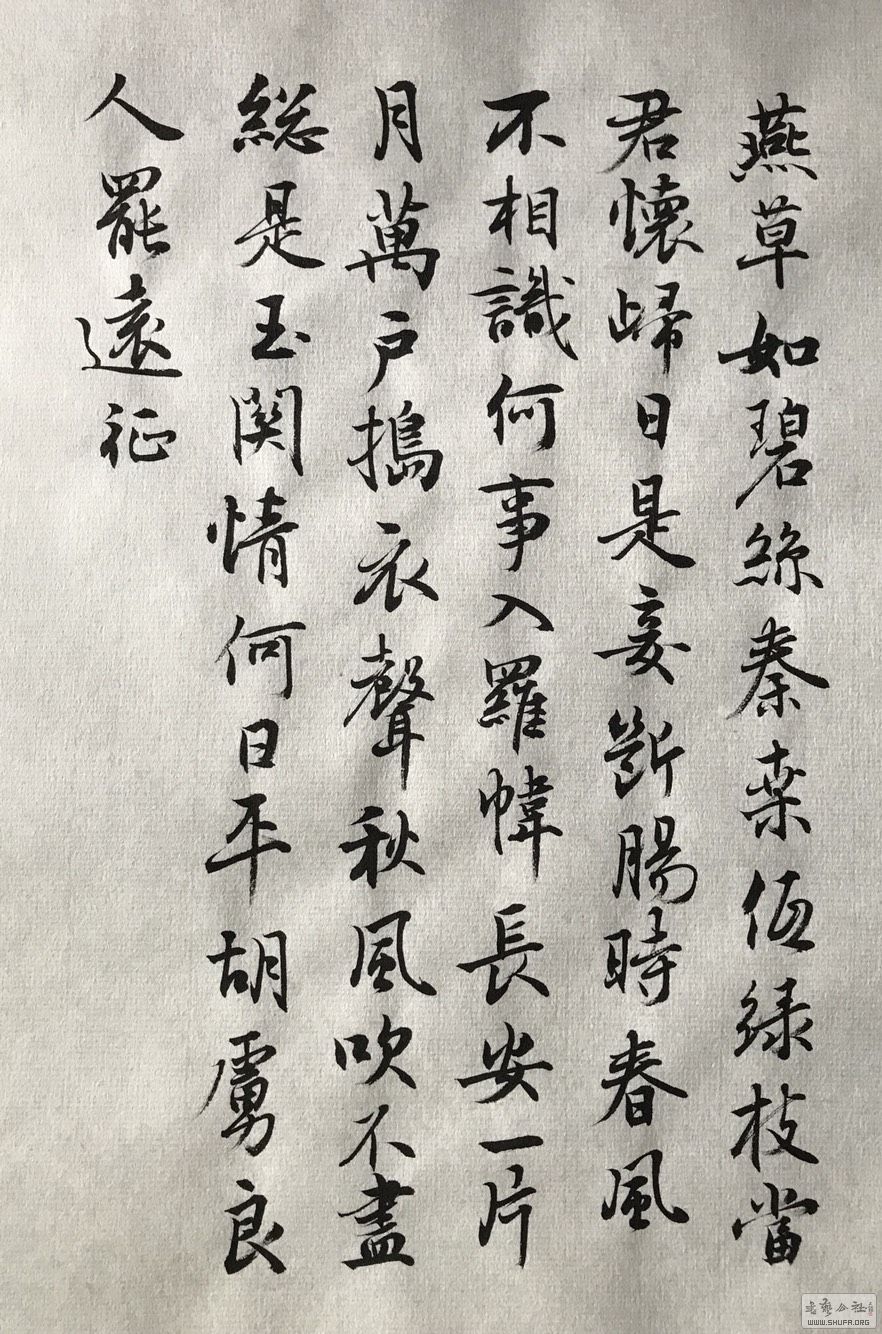 燕草如碧絲秦桒低緑枝當
君懷歸日是妾斷腸時春風
不相識何事入羅幃長安一片
月萬戶搗衣聲秋風吹不盡
総是玉関情何日平胡虜良
人罷遠征
書藝公社
WWW.SHUFA.ORG